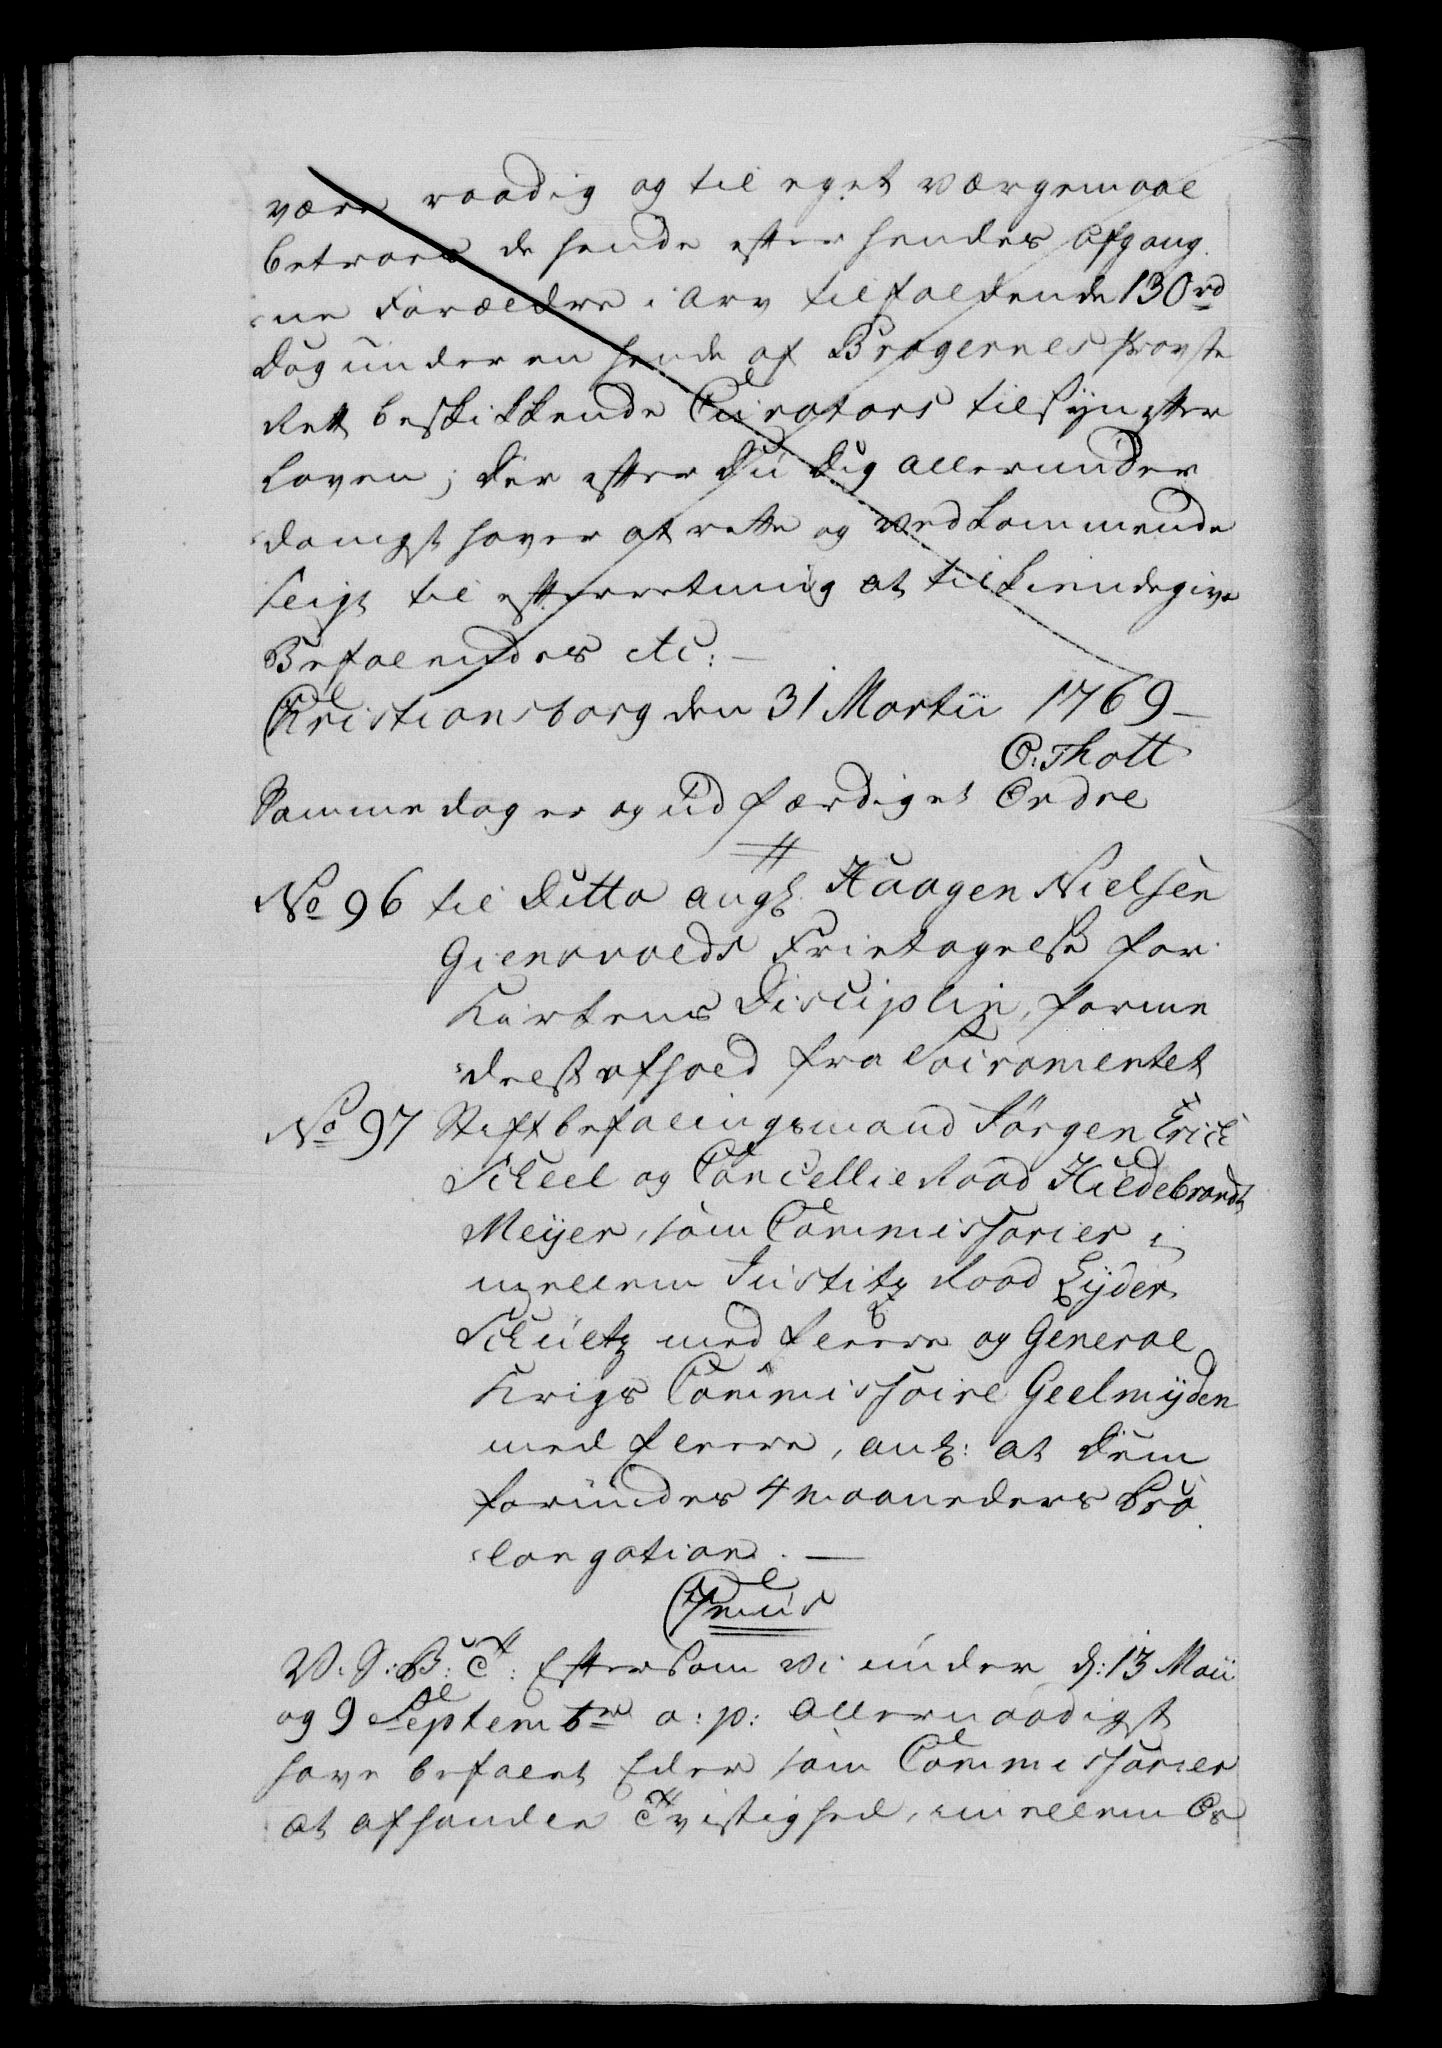 være raadig og til eget værgemaal
betroes de hende efter hendes afgang¬
ne Forældre i Arv tilfaldende 130 rd
dog under en hende af Bragernes Provste
Rett beskikkende Curators tilsyn efter
Loven; der efter Du dig allerunder
danigst haver at rette og vedkommende
sligt til efterretning at tilkiendegive
Befalendes etc: —
Christiansborg den 31 Martii 1769 —
O: Thott
Samme dag er og udfærdiget Ordre
No 96 til Ditto angl. Haagen Nielsen
Frietagelse for
Kirkens Disciplin, forme
delst afhold fra Sacramentet
No 97 Stiftbefalingsmand Jörgen Erich
Scheel og Cancellie Raad Hildebrandt
Meijer, som Commissarier i
mellem Justitz Raad Lyder
Schültz med fleere og General
Krigs Commissaire Geelmyden
med fleere, ank: at dem
forundes 4 maaneders Pro
longation. —
Genus
V. S: B: T: Eftersom vi under d: 13 Maii
og 9 Septembr a: p: allernaadigst
have befalet Eder som Commissarier
at afhandle Tvistighed, imellem Os